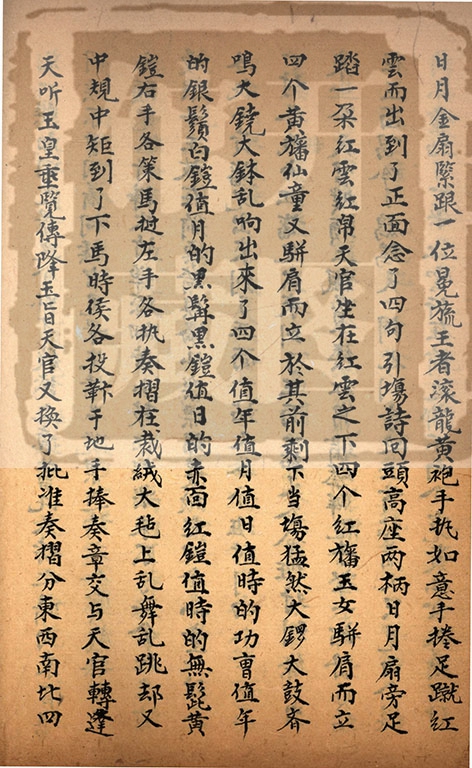 日月金扇緊跟一位冕旒王者滾龍黃袍手执如意手捲足蹴紅
雲而出到了正面念了四句引塲詩回頭高座两柄日月扇傍足
踏一朶紅雲紅帛天官坐在紅雲之下四个紅旛玉女駢肩而立
四个黃旛仙童又駢肩而立於其前剩下当塲猛然大鑼大鼓齐
鳴大鐃大鈸乱响出來了四个值年值月值日值時的功曹值年
的銀鬚白鎧值月的黑髯黑鎧值日的赤面紅鎧值時的無髭黃
鎧右手各策馬挝左手各执奏摺在栽絨大毡上乱舞乱跳却又
中規中矩到了下馬時侯各投靳于地手捧奏章交与天官轉達
天听玉皇垂覧傳降玉旨天官又換了批准奏摺分東西南北四